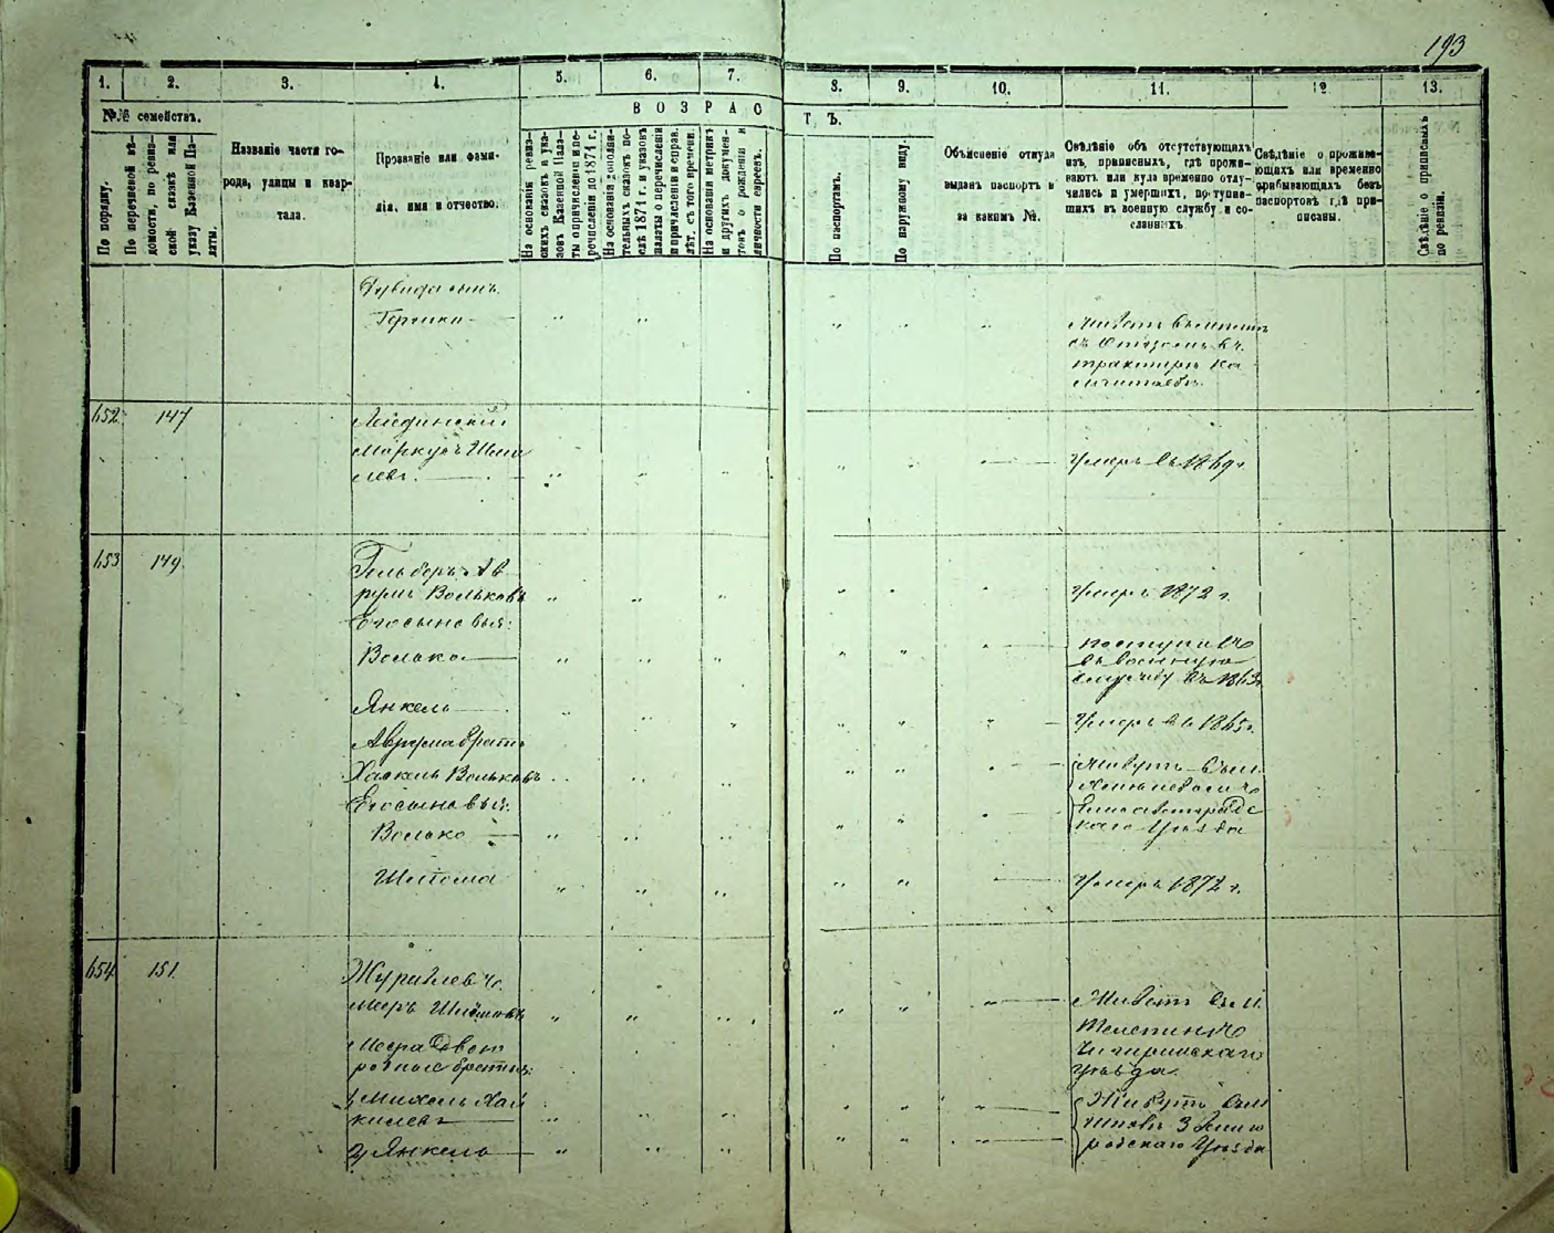 193
1. 2. 3. 4. 5. 6. 7. 8. 9. 10. 11. 12 13.
№№ семействъ.
По порядку.
По перечневой вѣ-
домости, по ревиз-
ской сказкѣ или
указу Казенной Па-
латы.
Названіе части го-
рода, улицы и квар-
тала.
Прозваніе или фами-
лія, имя и отчество.
ВОЗРАСТЪ.
На основаніи ревиз-
скихъ сказокъ и ука-
зовъ Казенной Пала-
ты о причисленіи и пе-
речисленіи до 1871 г.
На основаніи дополни-
тельныхъ сказокъ по-
слѣ 1871 г. и указовъ
палаты о перечисленіи
и причисленіи и справ.
лѣт. съ того времени.
На основаніи метрикъ
и другихъ докумен-
товъ о рожденіи и
личности евреевъ.
По паспортамъ.
По наружному виду.
Объясненіе откуда
выданъ паспортъ и
за какимъ №.
Свѣдѣніе объ отсутствующихъ
изъ приписныхъ, гдѣ прожи-
ваютъ или куда временно отлу-
чились и умершихъ, поступив-
шихъ въ военную службу и со-
сланныхъ
Свѣдѣніе о прожива-
ющихъ или временно
прибывающихъ безъ
паспортовъ гдѣ при-
писаны.
Свѣдѣніе о приписныхъ
по ревизіи.
сынъ.
Живетъ вмѣстѣ
съ Отцомъ въ
652 147
Маркусъ
Умеръ въ 1869 г.
653 149
Гельберъ Ав
румъ Вольковъ
Умеръ 1872 г.
Его сыновья:
Волько
поступилъ
въ военную
службу въ 1863 г.
Янкель
Умеръ въ 1865 г.
Аврума братъ
Хаскель Вольковъ
Живутъ въ м.
Его сыновья:
Елисаветградс
каго Уѣзда
Волько
Шлема
Умеръ 1872 г.
654 151.
Журавлев
Меръ
Живетъ въ м.
Телепино
Чигиринскаго
Уѣзда.
Меера Двою
родные братья:
1, Михель Хай
килевъ
Живутъ въ м.
Звениго
родскаго Уѣзда
2, Янкель